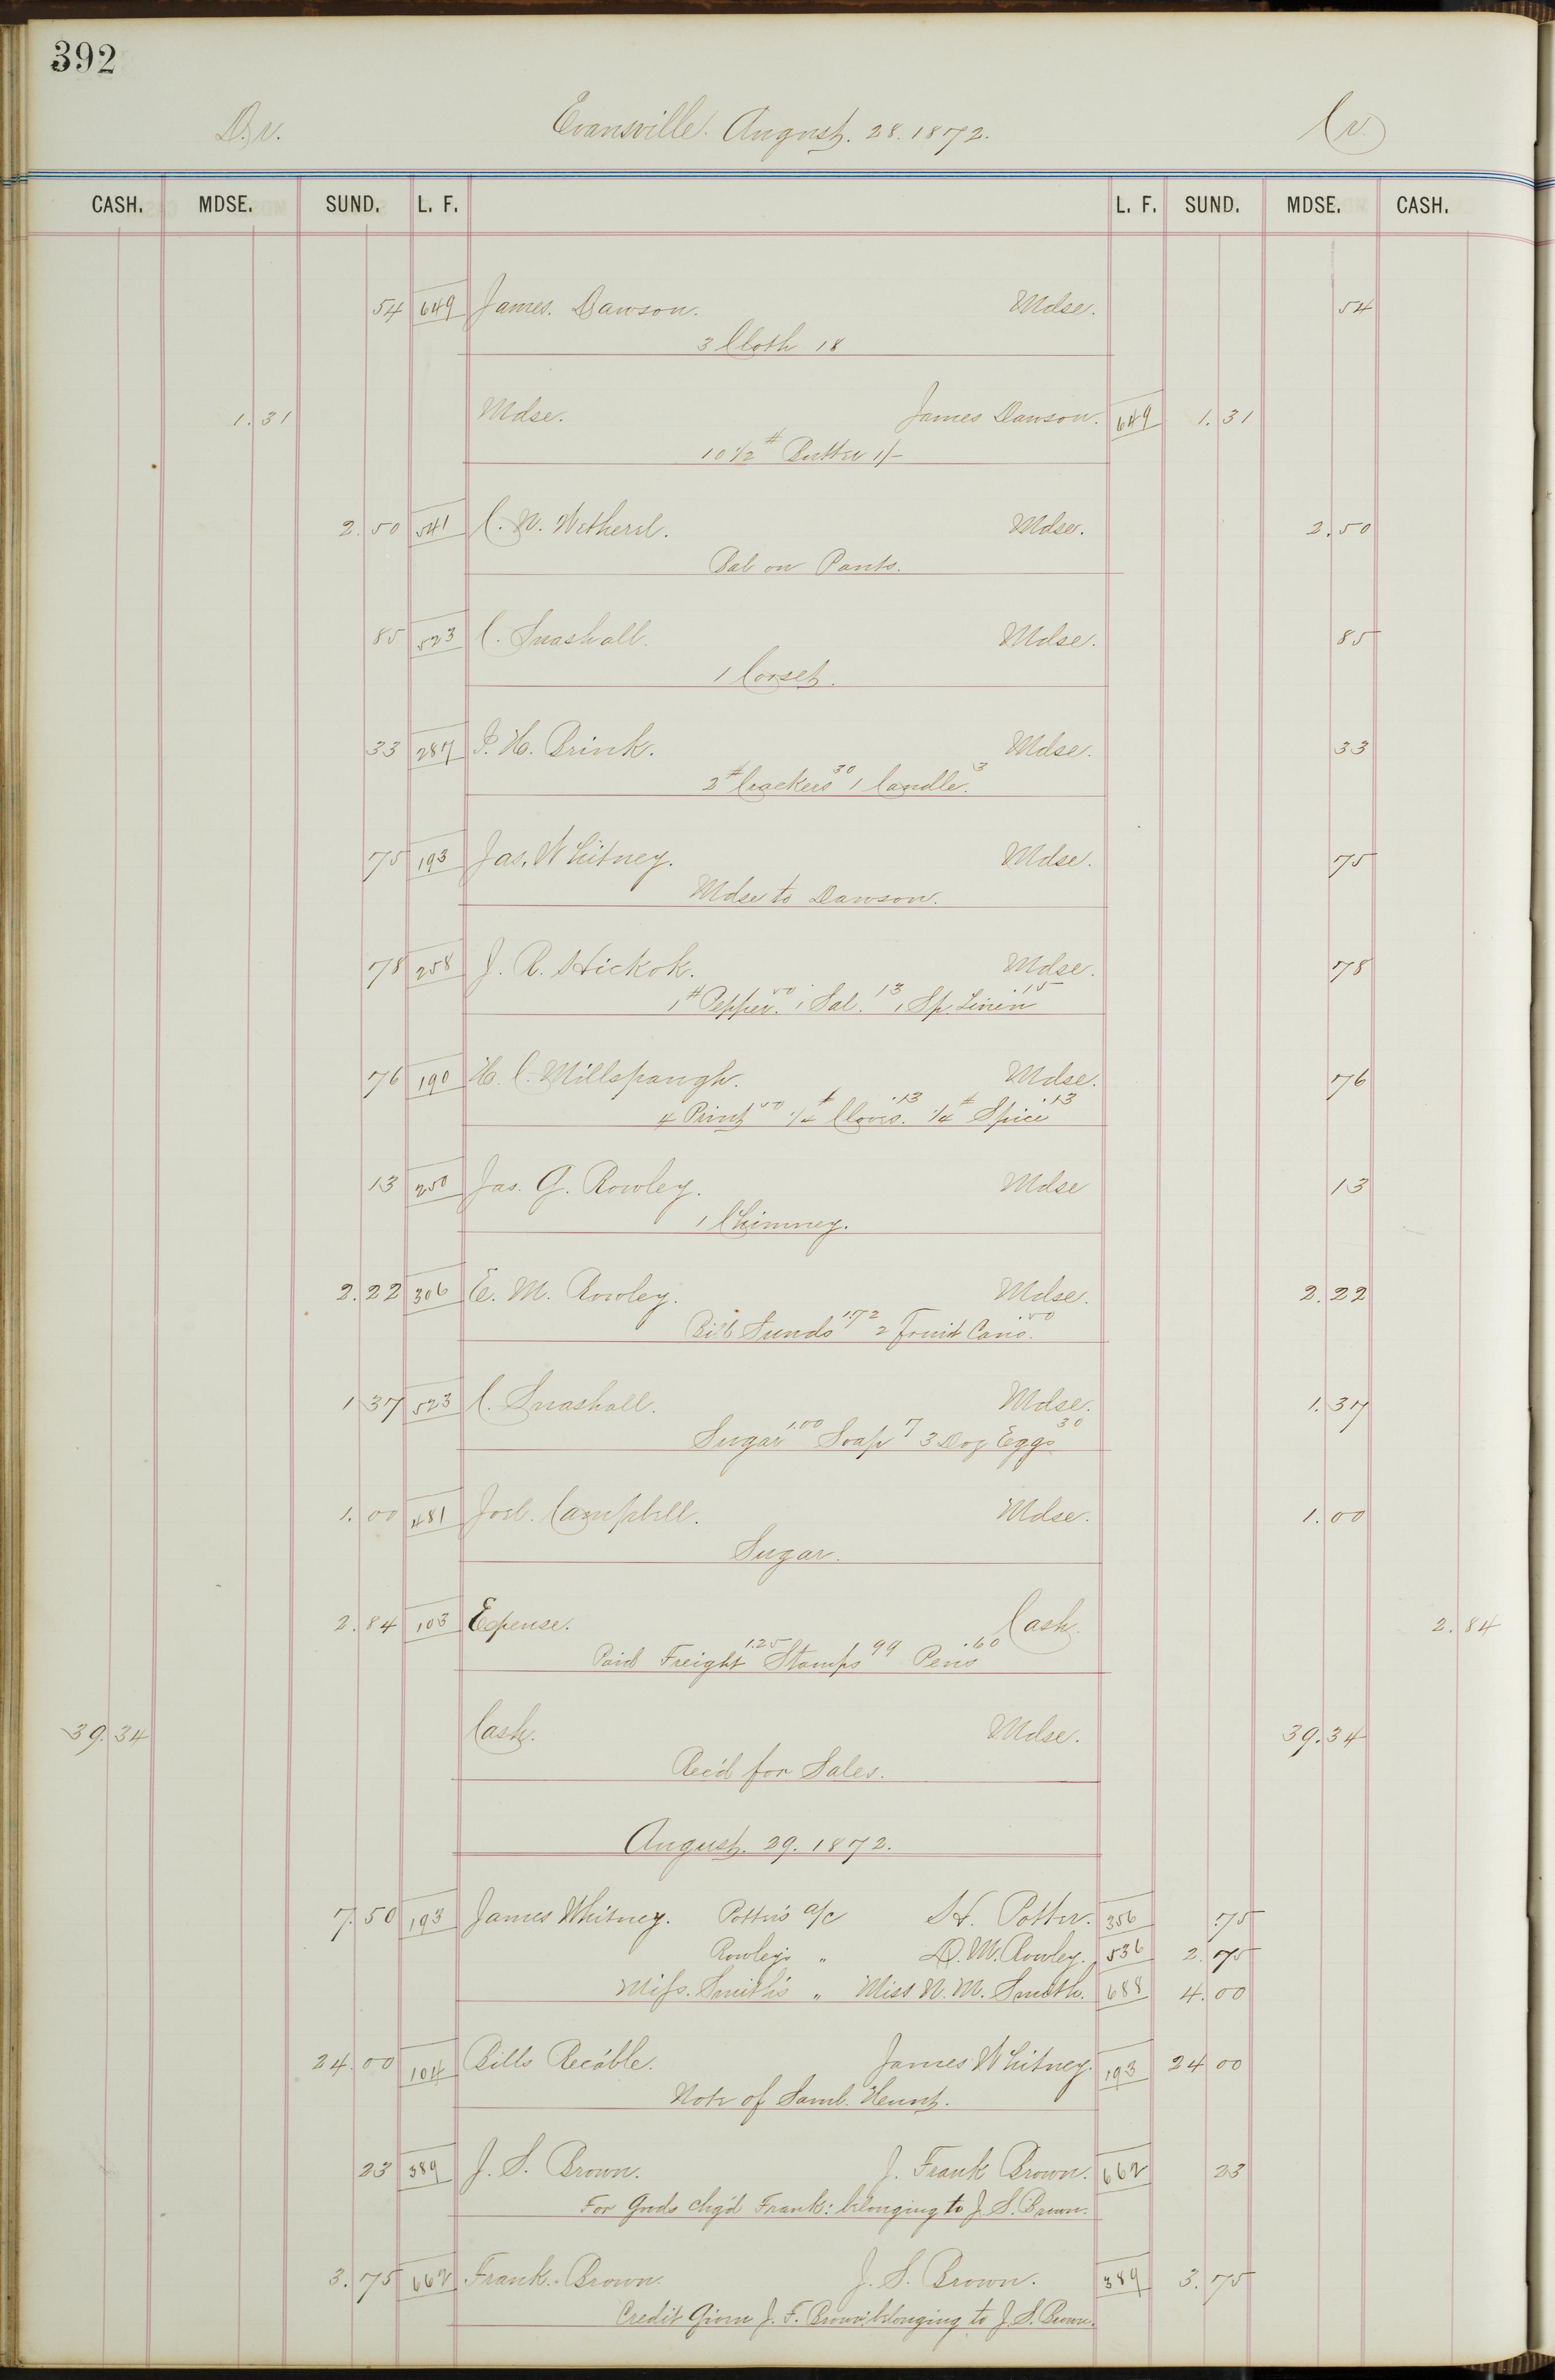 392
Dr. Evansville. August. 28. 1872. Cr.
CASH. MDSE. SUND. L. F. L. F. SUND. MDSE. CASH.
54 649 James. Dawson. Mdse. 54
3 Cloth 18
1.31 Mdse. James Dawson. 649 1.31
10 1/2 # Butter 1/-
2.50 541 C. N. Mdse. 2.50
Bal on Pants.
85 523 C. Snashall. Mdse. 85
1 Corset.
33 287 J. H. Brink. Mdse. 33
2 # Crackers 30 1 Candle. 3
75 193 Jas. Whitney. Mdse. 75
Mdse to Dawson.
78 258 J. R. Hickok. Mdse. 78
1 # Pepper. 50 1 Sal. 13 1 Sp. Linen .15
76 190 H. C. Millspaugh. Mdse. 76
4 Print 50 1/4 # Cloves. .13 1/4 # Spice .13
13 250 Jas. G. Rowley. Mdse 13
1 Chimney.
2.22 306 E. M. Rowley. Mdse. 2.22
Bill Sunds 1.72 2 Fruit Cans. .50
1.37 523 C. Snashall. Mdse. 1.37
Sugar 1.00 Soap 7 3 Doz Eggs 30
1.00 481 Joel. Campbell. Mdse. 1.00
Sugar.
2.84 103 Expense. Cash. 2.84
Paid Freight 1.25 Stamps 99 Pens .60
39.34 Cash. Mdse. 39.34
Rec'd for Sales.
August. 29. 1872.
7.50 193 James Whitney. Potter's a/c H. Potter. 356 .75
Rowley's " D. M. Rowley. 536 2.75
Miss. Smith's " Miss N. M. Smith. 688 4.00
24.00 104 Bills Rec'able. James Whitney. 193 24 00
Note of Saml. Hunt.
23 389 J. S. Brown. J. Frank Brown. 662 23
For Goods chg'd Frank: belonging to J. S. Brown.
3.75 662 Frank. Brown. J. S. Brown. 389 3.75
Credit Given J. F. Brown: belonging to J. S. Brown.